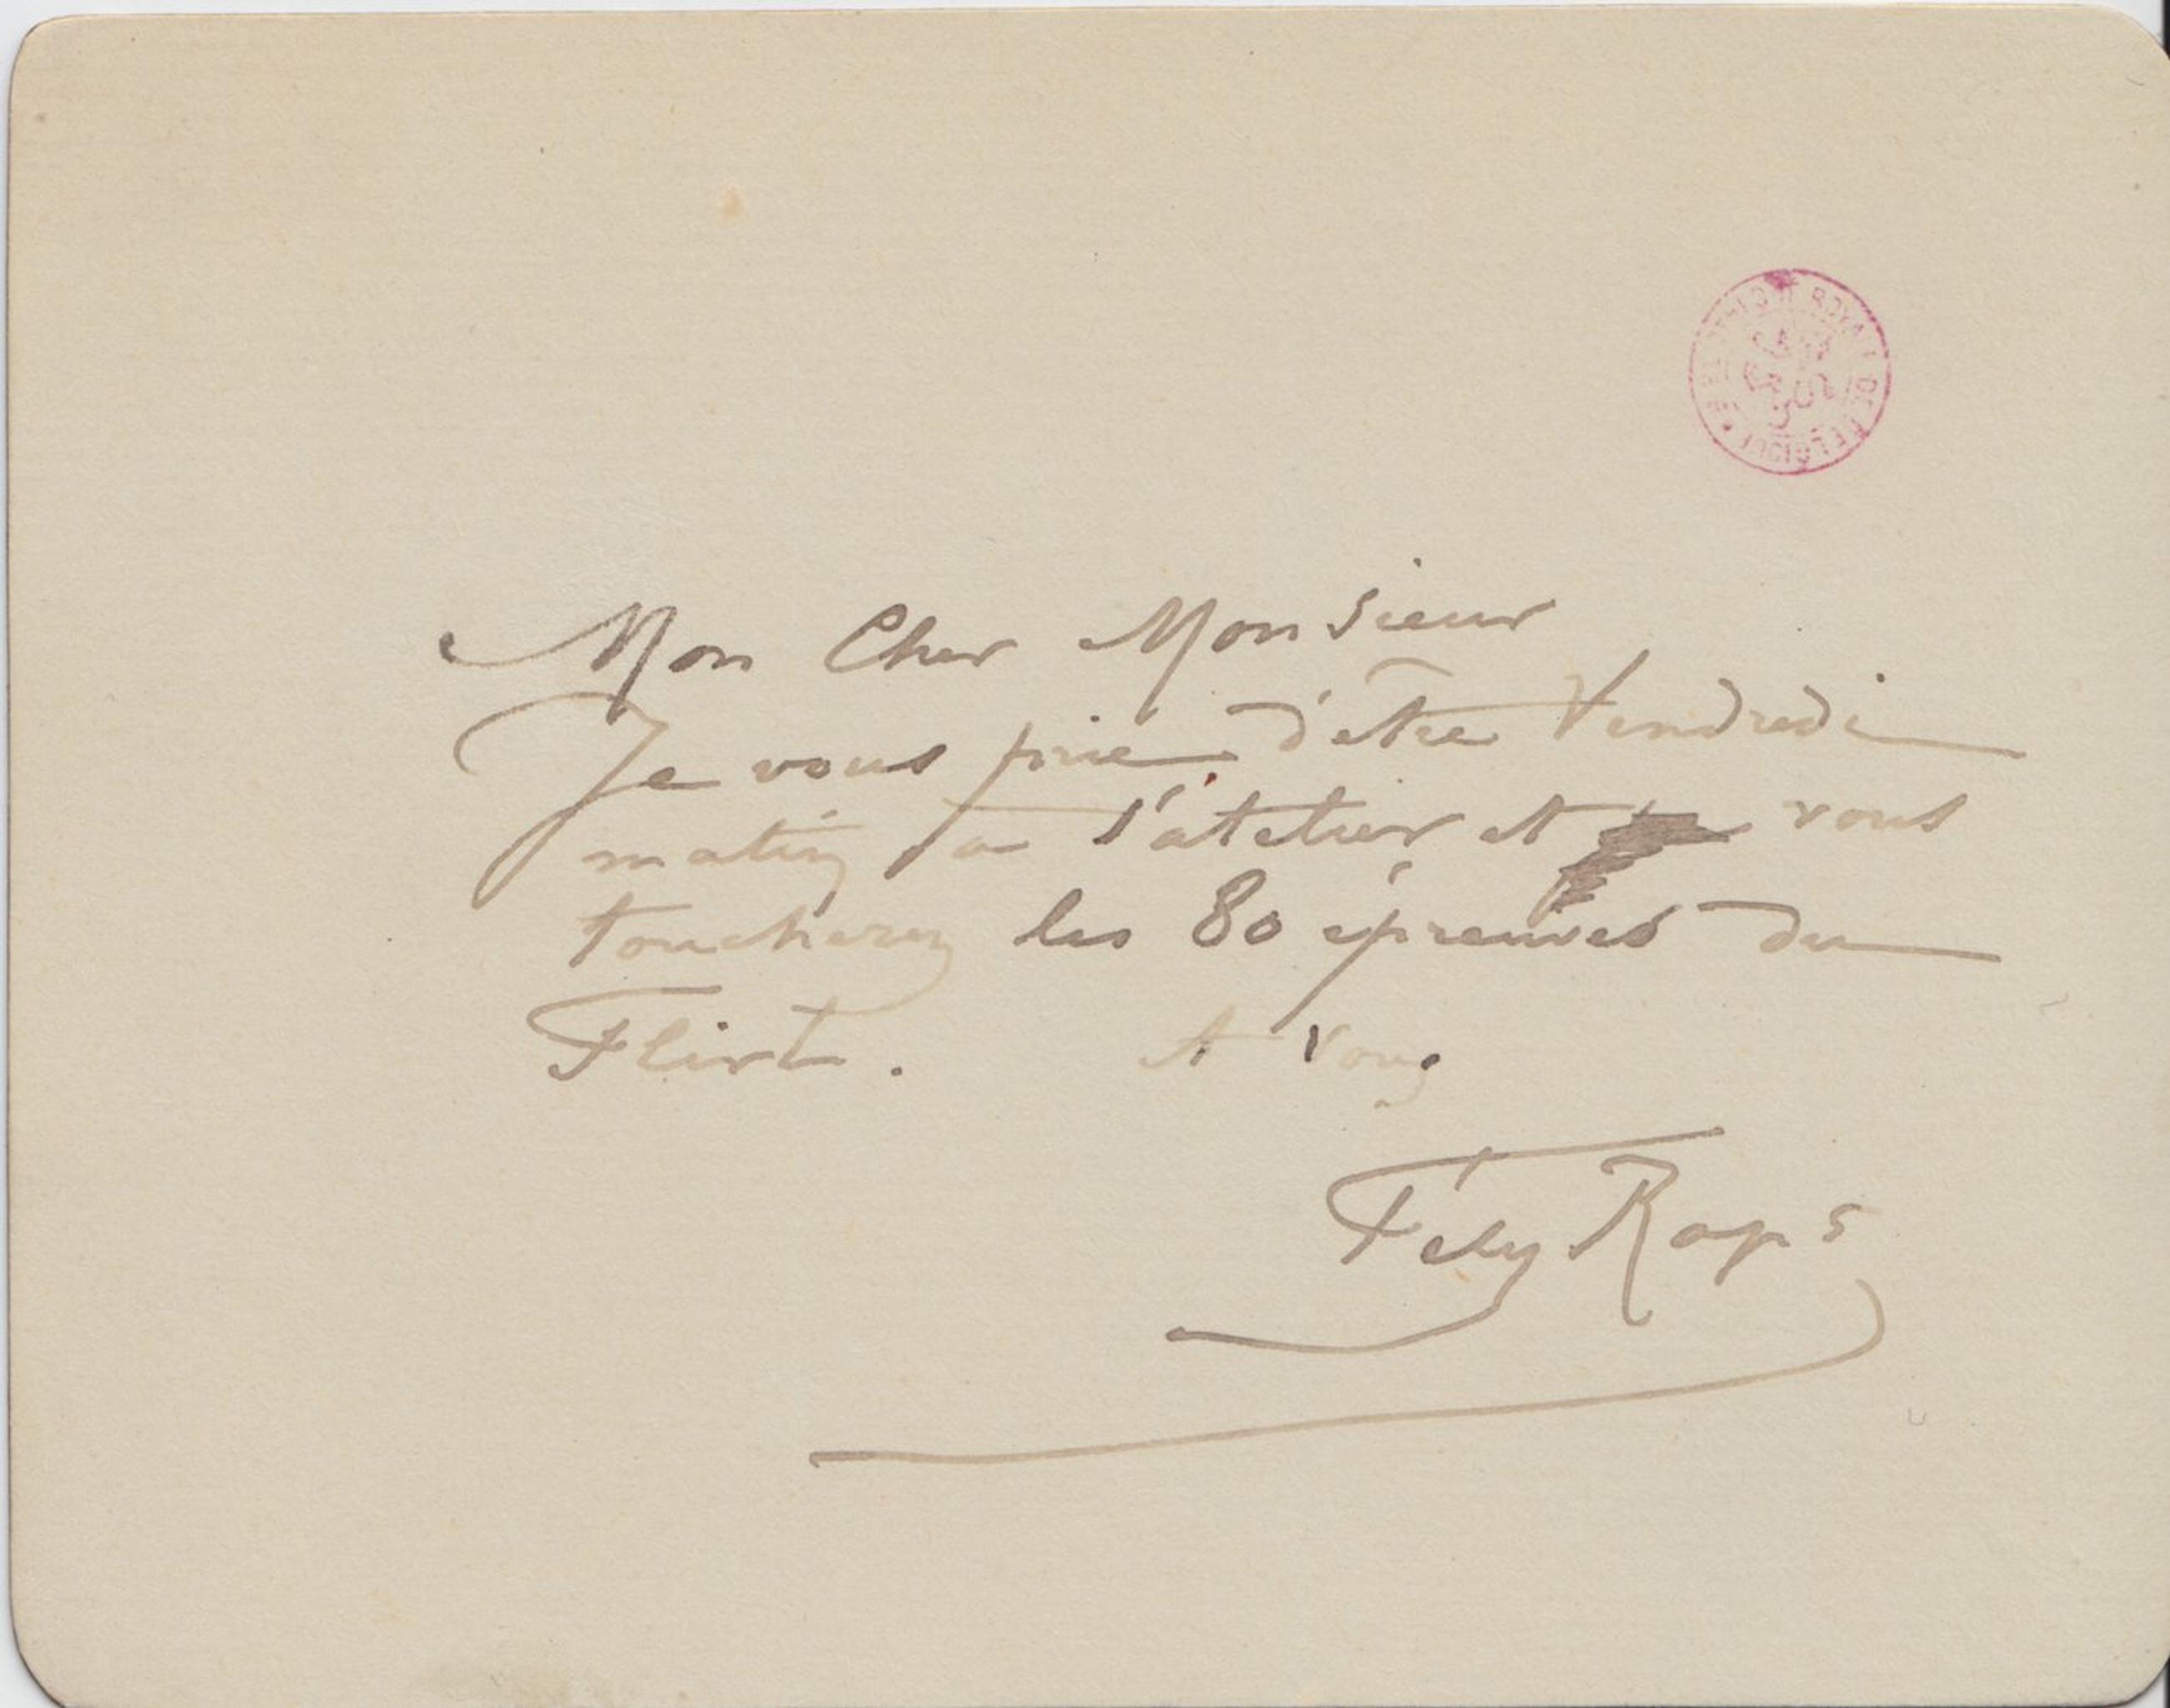 BIBLIOTHEQUE ROYALE DE BELGIQUE
Mon Cher Monsieur
Je vous prie d'être Vendredi
matin, à l'atelier et vous
toucherez les 80 épreuves du
Flirt. A vous
Fély Rops